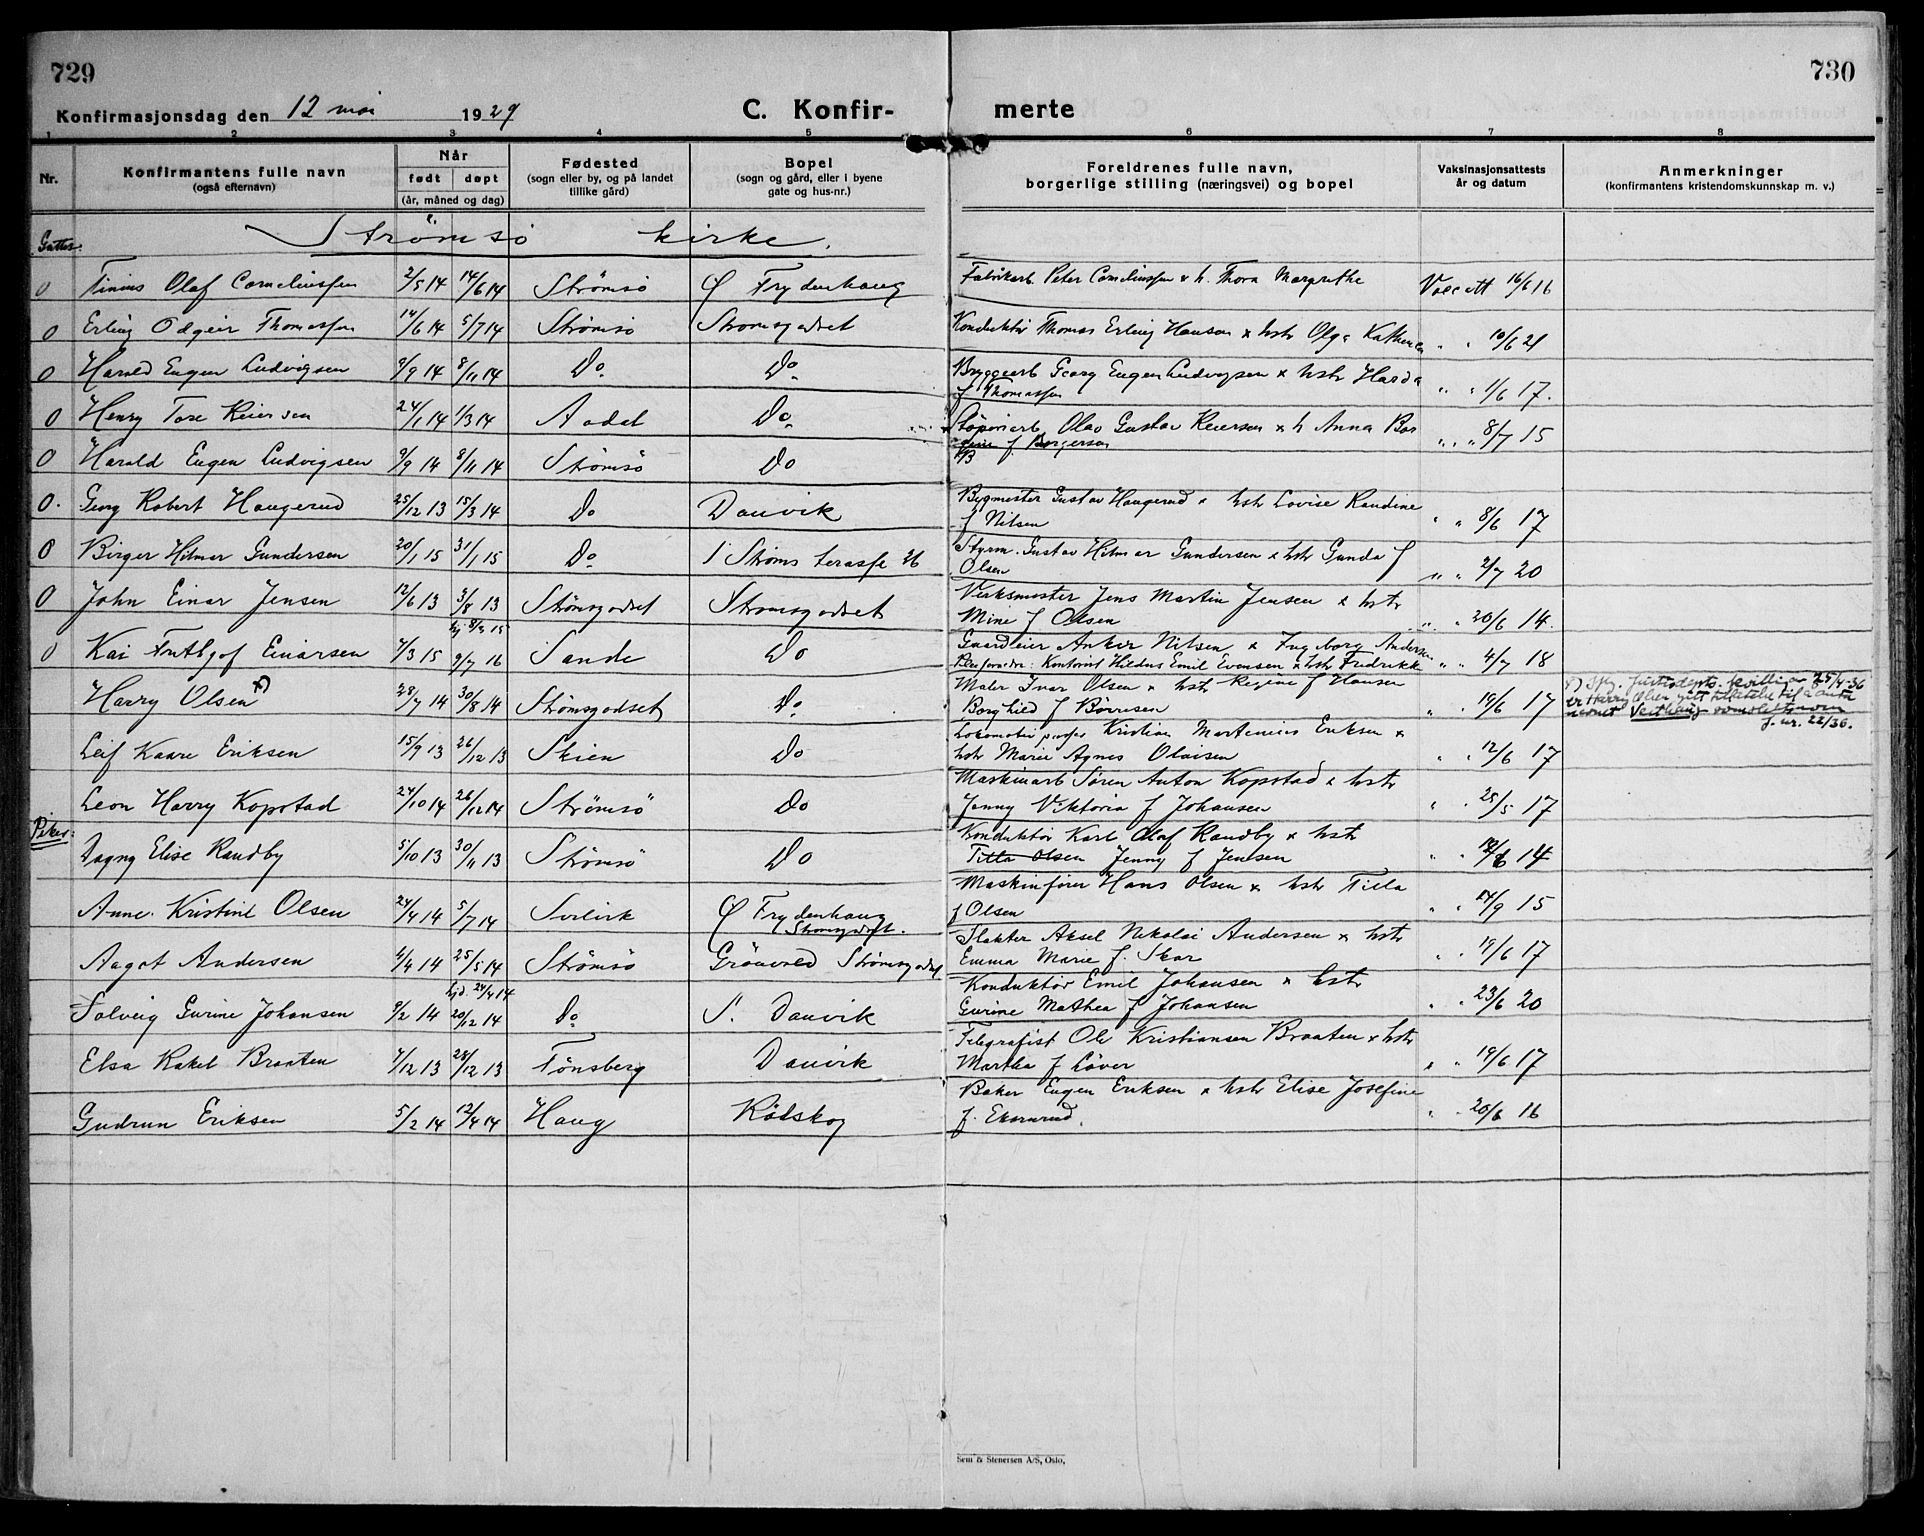 729
730
Konfirmasjonsdag den 12 mai 1929
C. Konfir-
merte
1 2 3 4 5 6 7 8
Nr.
Konfirmantens fulle navn
(også efternavn)
Når
født døpt
(år, måned og dag)
Fødested
(sogn eller by, og på landet
tillike gård)
Bopel
(sogn og gård, eller i byene
gate og hus-nr.)
Foreldrenes fulle navn,
borgerlige stilling (næringsvei) og bopel
Vaksinasjonsattests
år og datum
Anmerkninger
(konfirmantens kristendomskunnskap m. v.)
Strømsö kirke.
Gutter:
0 Olaf Corneliussen 2/5 14 14/6 14 Strömsö Frydenhaug Fabrikarb. Peter Corneliussen & h. Thora Margrethe 16/6 16
0 Erling Odgeir Thomassen 14/6 14 5/7 14 Strömsö Stromsgodset Konduktör Thomas Erling Hansen x hstr Olga " " 10/6 21
0 Harald Eugen Ludvigsen 9/9 14 8/11 14 Do Do Bryggearb Georg Eugen Ludvigsen x hstr Harda
f Thomassen " " 1/6 17.
0 Henry Tore Reiersen 24/1 14 1/3 14 Aadal Do Olav Gustav Reiersen x h Anna Bor
f Borgersen " " 8/7 15
0 Harald Eugen Ludvigsen 9/9 14 8/11 14 Strömsö Do
0. Georg Robert Haugerud 25/12 13 15/3 14 Do Danvik Bygmester Gustav Haugerud x hstr Lovise Randine
f Nilsen " " 8/6 17
0 Birger Hilmar Gundersen 20/1 15 31/1 15 Do Ströms terasse 26 Styrm. Gustav Hilmar Gundersen x hstr Gunda f
Olsen " " 2/7 20
0 John Einar Jensen 12/6 13 3/8 13 Strömsgodset Stromsgodset Verksmester Jens Martin Jensen x hstr
Mine f Olsen " " 20/6 14.
0 Kai Einarsen 7/3 15 9/7 16 Sande Do Gaardeier Anker Nilsen x Ingeborg Andersen
Kontorist Emil Evensen x hstr Fredrikke " " 4/7 18
Harry Olsen x) 28/7 14 30/8 14 Strömsgodset Do Maler Ivar Olsen x hstr Regine f Hansen
Borghild f Borresen " 19/6 17
x) Skj. justisdepts. bevilling av 25/4-36
er Harry Olsen gitt tillatelse til å anta
navnet Veithaug som slektsnavn
J. nr. 22/36.
Leif Kaare Eriksen 15/9 13 26/12 13 Skien Do Kristian Martinius Eriksen x
hstr Marie Agnes Olaisen " " 12/6 17
Leon Harry Kopstad 24/10 14 26/12 14 Strömsö Do Maskinarb Sören Anton Kopstad x hstr
Jenny Viktoria f Johansen " " 25/5 17
Piker:
Dagny Elise Randby 5/10 13 30/11 13 Strömsö Do Konduktör Karl Olaf Randby x hstr
Tilla Olsen Jenny f Jensen " " 14
Anne Kristine Olsen 24/4 14 5/7 14 Svelvik Frydenhaug
Stromsgodset. Maskinfører Hans Olsen x hstr Tilla
f Olsen " " 24/9 15
Aagot Andersen 4/4 14 25/5 14 Strömsö Grönvold Strömsgodset Slakter Aksel Nikolai Andersen x hstr
Emma Marie f. Skar " " 19/6 17
Solveig Gurine Johansen 9/2 14 hjd. 24/4 14 20/12 14 Do S. Danvik Konduktör Emil Johansen x hstr
Gurine Mathea f Johansen " " 23/6 20
Elsa Rakel Braaten 7/12 13 28/12 13 Tönsberg Danvik Telegrafist Ole Kristiansen Braaten x hstr
Martha f Löver " " 19/6 17
Gudrun Eriksen 5/2 14 12/4 14 Haug Rödskog Baker Eugen Eriksen x hstr Elise Josefine
f. Ekornrud. " " 20/6 16
Sem & Stenersen A/S, Oslo,